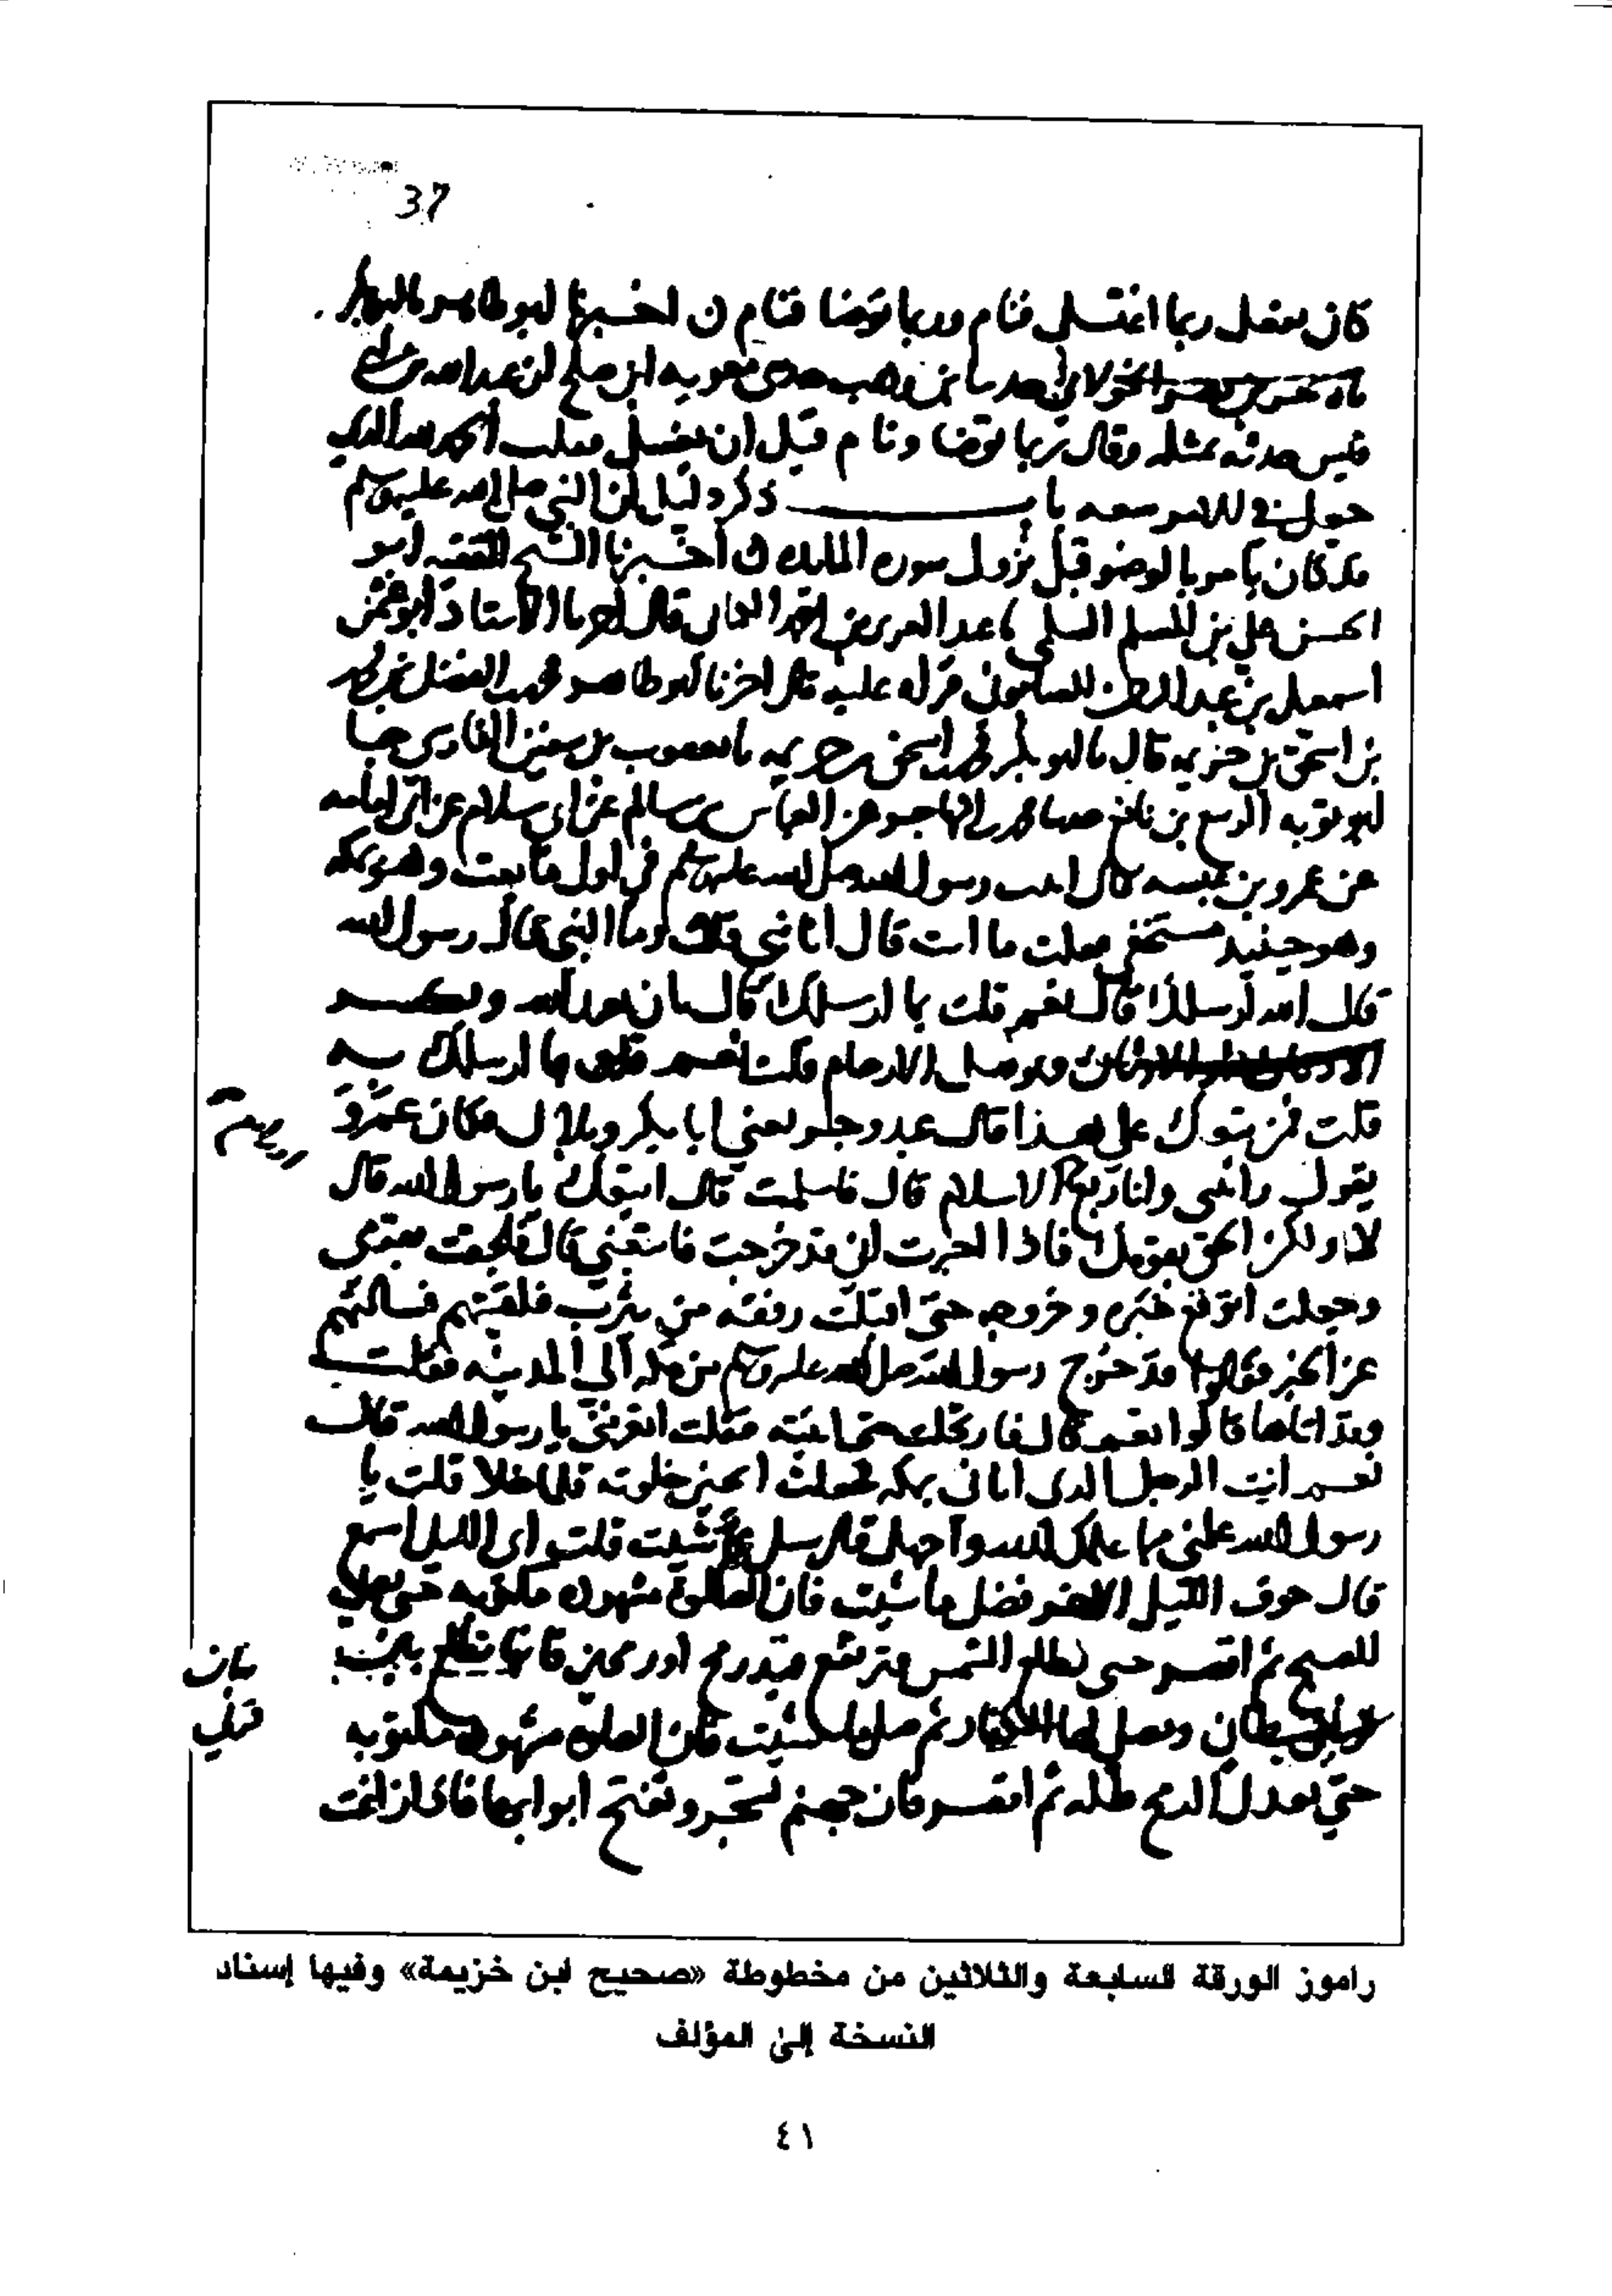 37
كان يفعل ربما اغتسل فنام وربما توضا فنام ن اخبرنا ابو طاهر نا ابو بكر
نا الخولاني حدثنا ابن وهب حدثني معويه ابن صلح ان عبد الله بن ابي
قيس حدثه بمثله وقال ربما توضا ونام قبل ان يغتسل فقلت الحمد لله الذي
جعل في الامر سعه باب ذكر دليل ان النبي صلى الله عليه وسلم
قد كان يامر بالوضو قبل نزول سوره المائده ن اخبرنا الشيخ الفقيه ابو
الحسن علي بن المسلم السلمي نا عبد العزيز بن احمد قال اخبرنا الاستاذ ابو عثمن
اسمعيل بن عبد الرحمن الصابوني قراه عليه قال اخبرنا ابو طاهر محمد بن الفضل بن محمد
بن اسحق بن خزيمه قال نا ابو بكر محمد بن اسحق بن خزيمه نا يعقوب بن سفين الفارسي حدثنا
ابو توبه الربيع بن نافع حدثنا محمد بن المهاجر عن العباس بن سالم عن ابي سلام عن ابي امامه
عن عمرو بن عبسه قال اتيت رسول الله صلى الله عليه وسلم في اول ما بعث وهو بمكه
وهو حينيذ مستخفي فقلت ما انت قال انا نبي قلت وما النبي قال رسول الله
قال الله ارسلك قال نعم قلت بما ارسلك قال بان نعبد الله ونكسر
الاوثان ونوصل الارحام قلت نعم ما ارسلك به
قلت فمن يتبعك على هذا قال عبد وحر يعني ابا بكر وبلال فكان عمرو
يقول رايتني وانا ربع الاسلام قال فاسلمت قال اتبعك يا رسول الله قال
لا ولكن الحق بقومك فاذا اخبرت اني قد خرجت فاتبعني قال فلحقت بقومي
وجعلت اتوقع خبره وخروجه حتى اقبلت رفقه من يثرب فلقيتهم فسالتهم
عن الخبر فقالوا قد خرج رسول الله صلى الله عليه وسلم من مكه الى المدينه فقلت
وقد اتاها قالوا نعم قال فارتحلت حتى اتيته فقلت اتعرفني يا رسول الله قال
نعم انت الرجل الذي اتاني بمكه فجعلت اتحين خلوته فلما خلا قلت يا
رسول الله علمني مما علمك الله واجهل قال سل عما شيت قلت اي الليل اسمع
قال جوف الليل الاخر فصل ما شيت فان الصلوه مشهوده مكتوبه حتى تصلي
الصبح ثم اقصر حتى تطلع الشمس فترتفع قيد رمح او رمحين فانها تطلع بين
قرني شيطان وتصلي لها الكفار ثم صل ما شيت فان الصلوه مشهوده مكتوبه
حتى يعدل الرمح ظله ثم اقصر فان جهنم تسجر وتفتح ابوابها فاذا زاغت
راموز الورقة السابعة والثلاثين من مخطوطة «صحيح ابن خزيمة» وفيها إسناد
النسخة إلى المؤلف
٤١